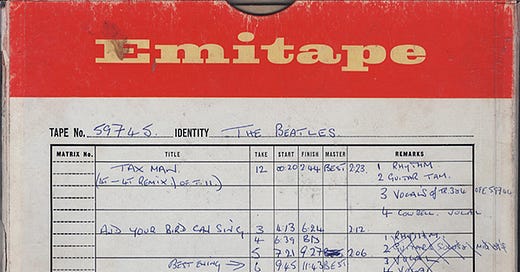 Emitape
TAPE No. 59745. IDENTITY THE BEATLES.
MATRIX No. TITLE TAKE START FINISH MASTER REMARKS
TAX MAN. 12 00:20 2:44 BEST 2.23. 1 RHYTHM.
2 GUITAR TAM.
3 VOCALS
4 VOCAL
AND YOUR BIRD CAN SING 3 4:13 6:24 2.12 1 RHYTHM.
4 6:39 BD
5 7:21 9:27 2.06
BEST ENDING → 6 9:45 11:43 BEST